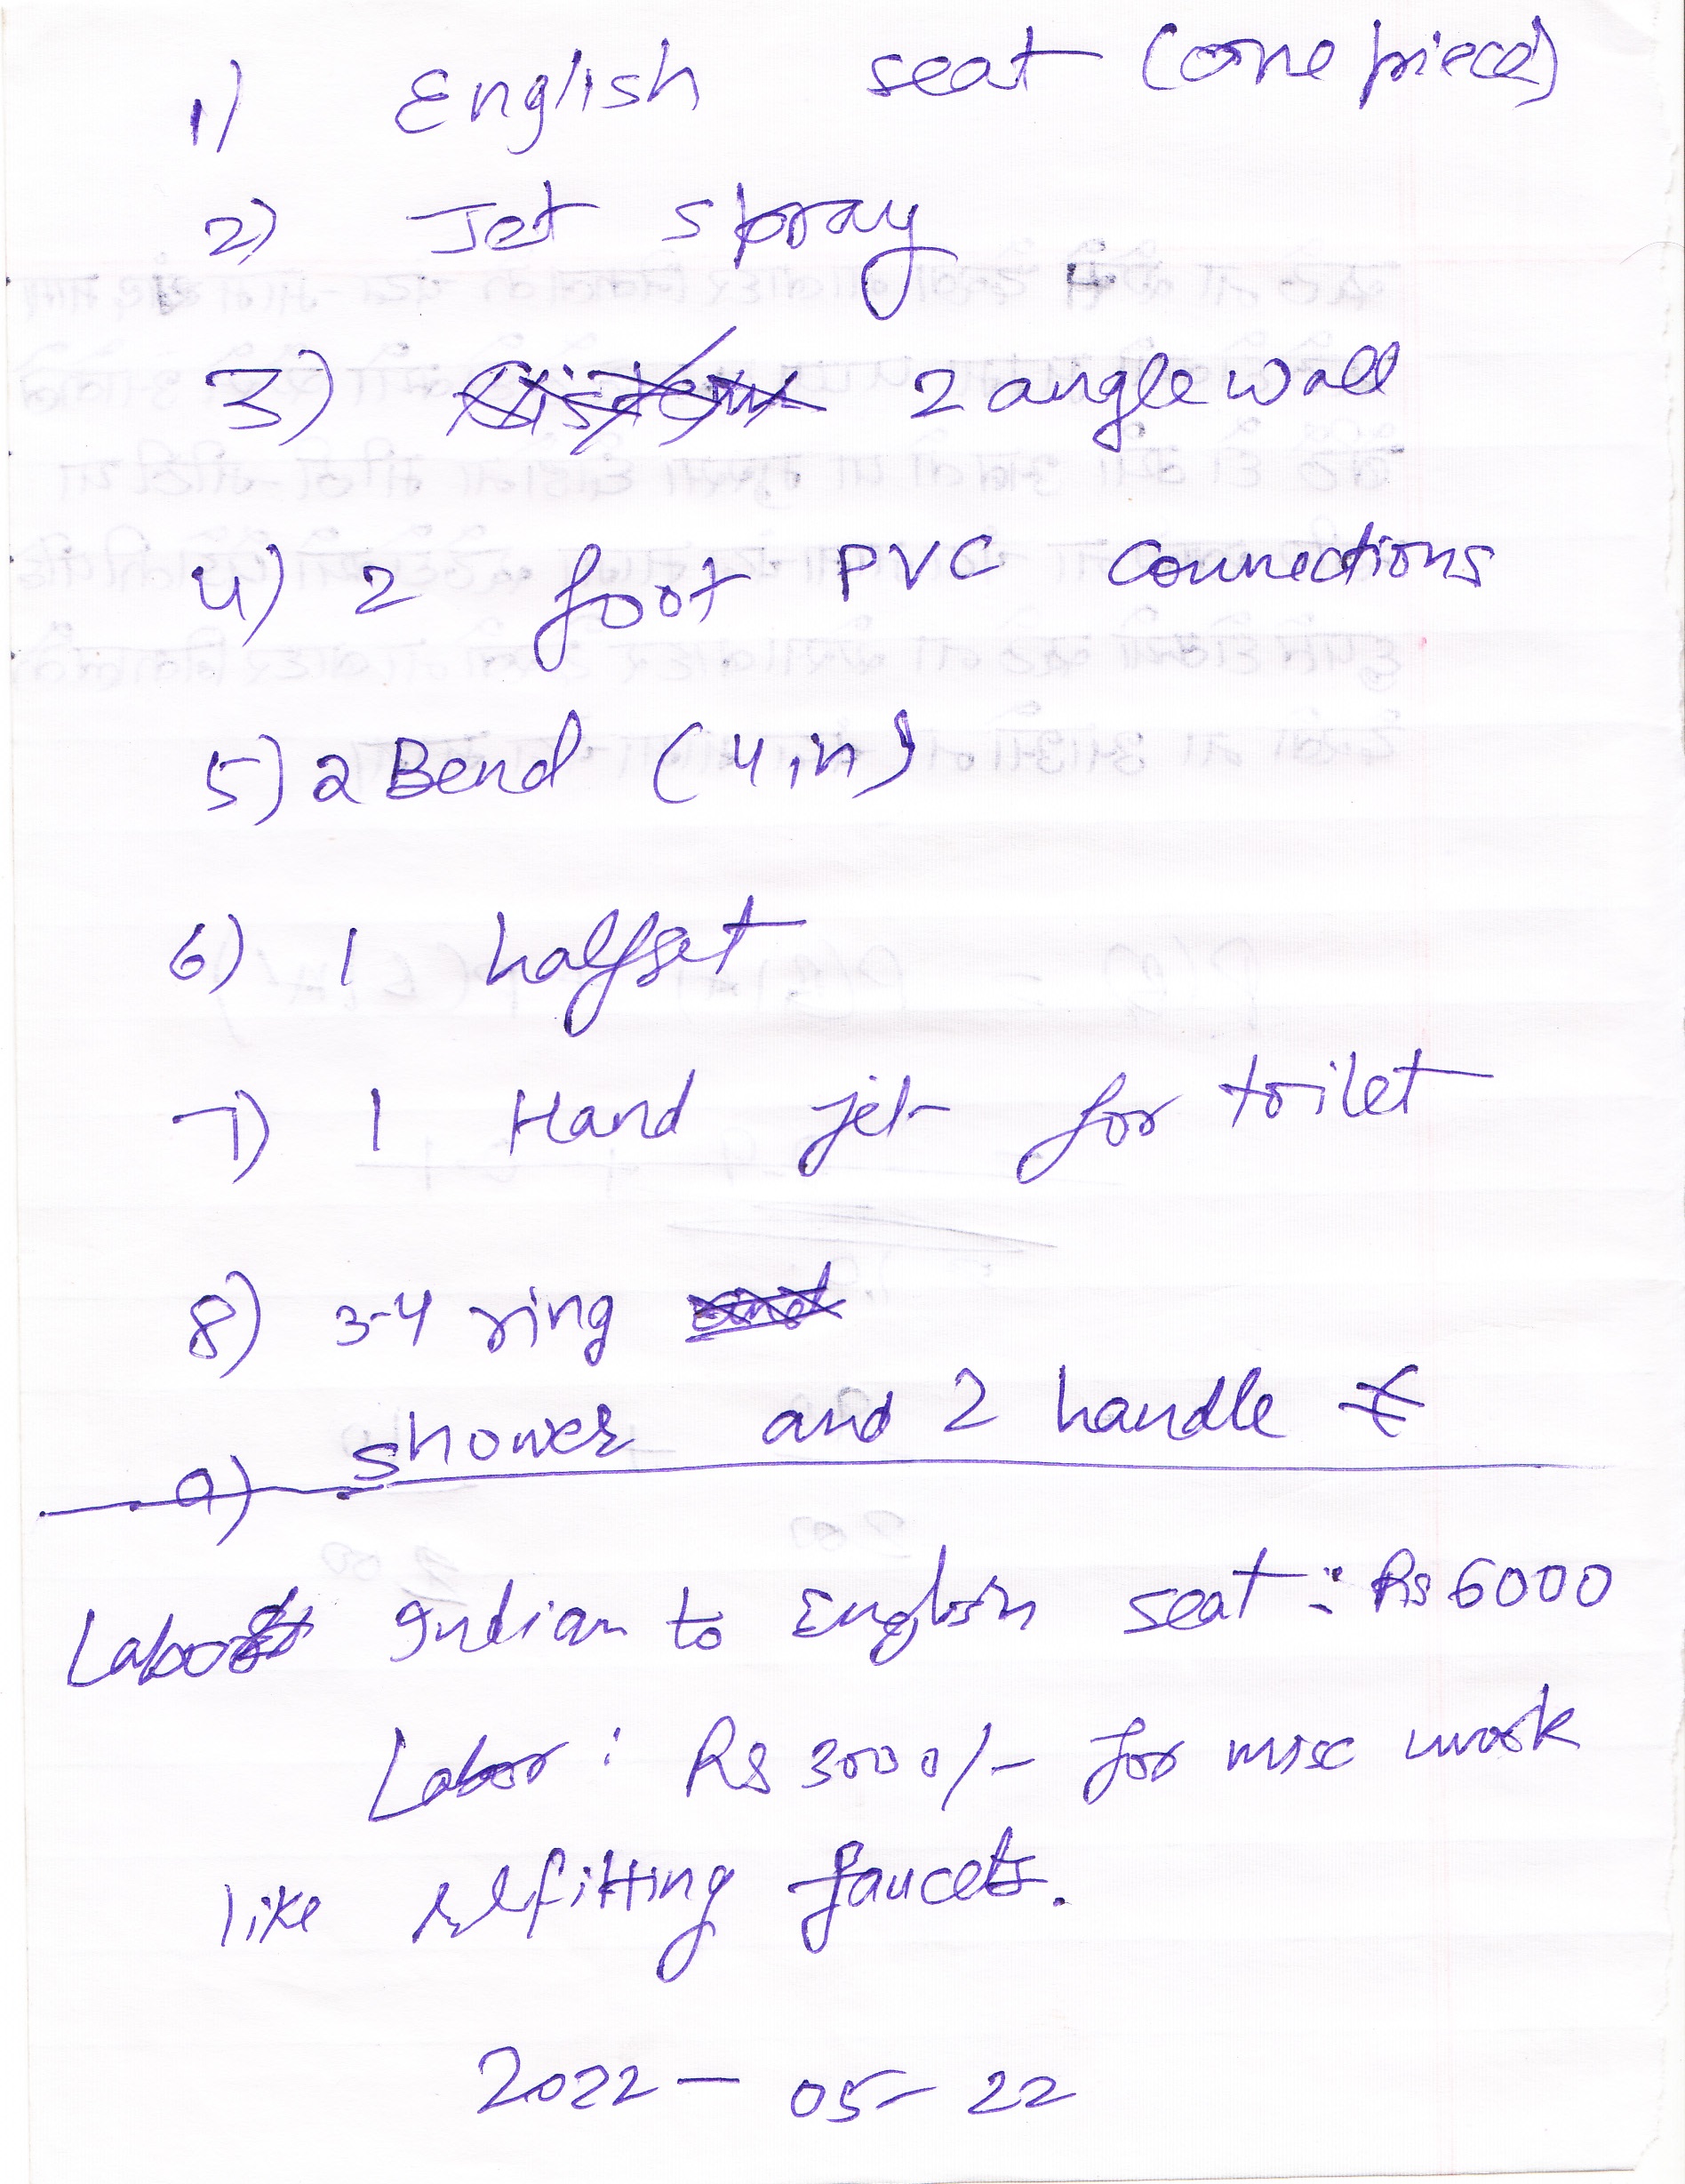 1) English seat (one piece)
2) Jet spray
3) 2 angle wall
4) 2 foot PVC connections
5) 2 Bend (4 in)
6) 1 halfset
7) 1 Hand jet for toilet
8) 3-4 ring
9) shower and 2 handle
Labor Indian to English seat : Rs 6000
Labor : Rs 3000/- for misc work
like refitting faucets.
2022 - 05 - 22